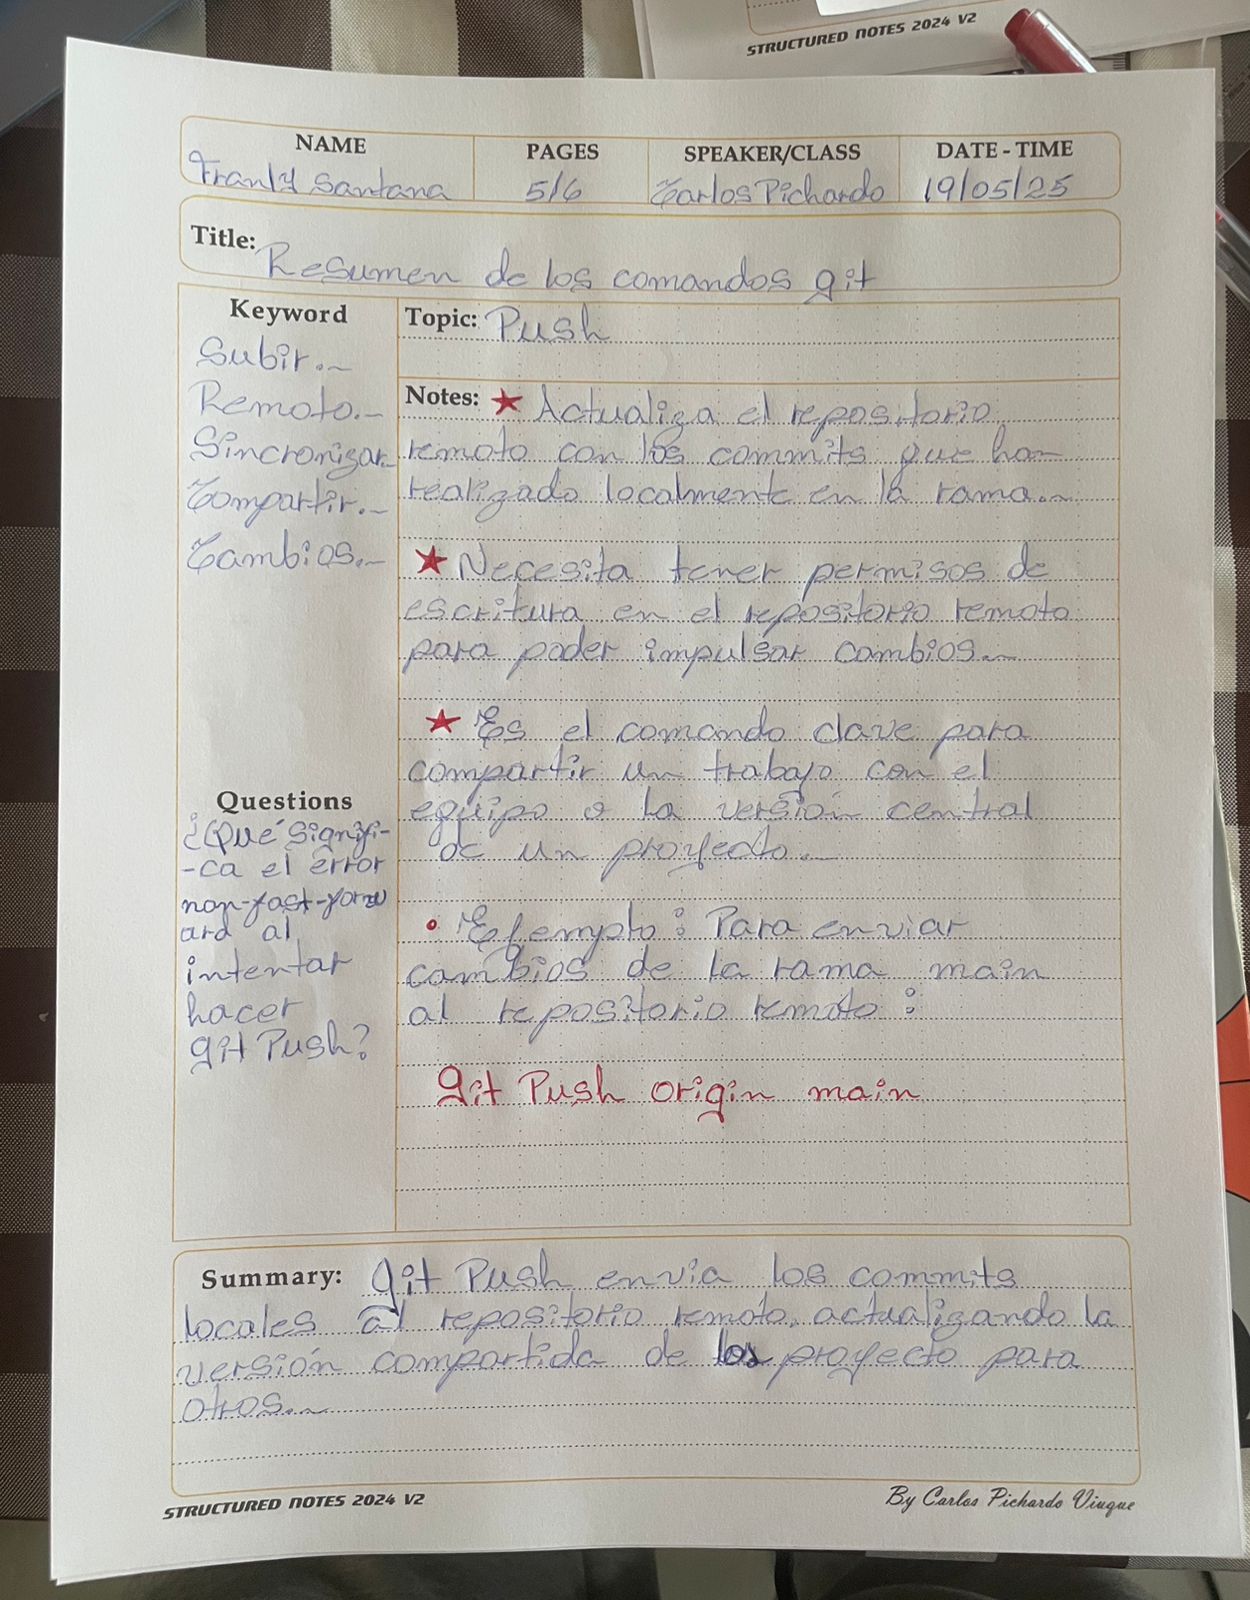 STRUCTURED NOTES 2024 V2
NAME
PAGES
SPEAKER/CLASS
DATE - TIME
Franly Santana
5/6
Carlos Pichardo
19/05/25
Title: Resumen de los comandos git
Keyword
Subir.
Remoto.
Sincronizar.
Compartir.
Cambios.
Questions
¿Qué signifi-
-ca el error
non-fast-forw
ard al
intentar
hacer
git Push?
Topic: Push
Notes: ★ Actualiza el repositorio
remoto con los commits que han
realizado localmente en la rama.
★ Necesita tener permisos de
escritura en el repositorio remoto
para poder impulsar cambios.
★ Es el comando clave para
compartir un trabajo con el
equipo o la versión central
de un proyecto.
• Ejemplo: Para enviar
cambios de la rama main
al repositorio remoto:
git Push origin main
Summary: git Push envia los commits
locales al repositorio remoto, actualizando la
versión compartida de los proyecto para
otros.
STRUCTURED NOTES 2024 V2
By Carlos Pichardo Viuque